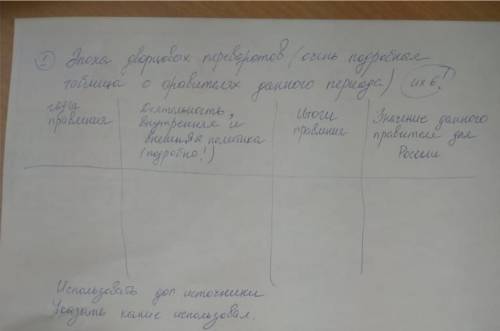 1 Эпоха дворцовых переворотов (очень подробная
таблица о правителях данного периода) их 6!
годы
правления
Деятельность,
внутренняя и
внешняя политика
(подробно!)
Итоги
правления
Значение данного
правителя для
России
Использовать доп источники
Указать какие использовал.